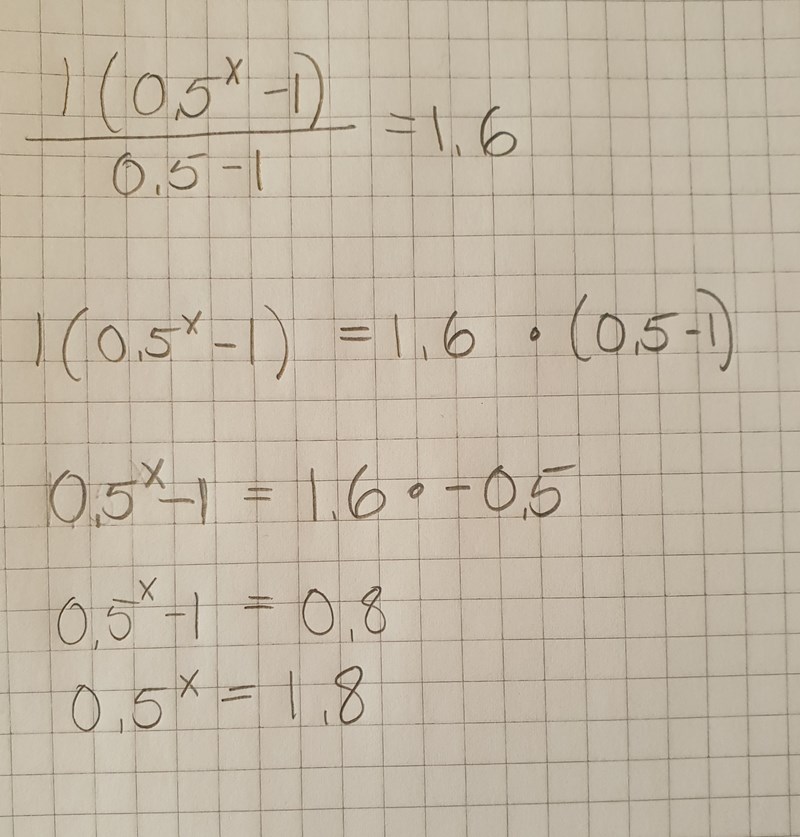 1(0,5^x -1)
0,5 -1 = 1,6
1(0,5^x -1) = 1,6 · (0,5-1)
0,5^x -1 = 1,6 · -0,5
0,5^x -1 = 0,8
0,5^x = 1,8